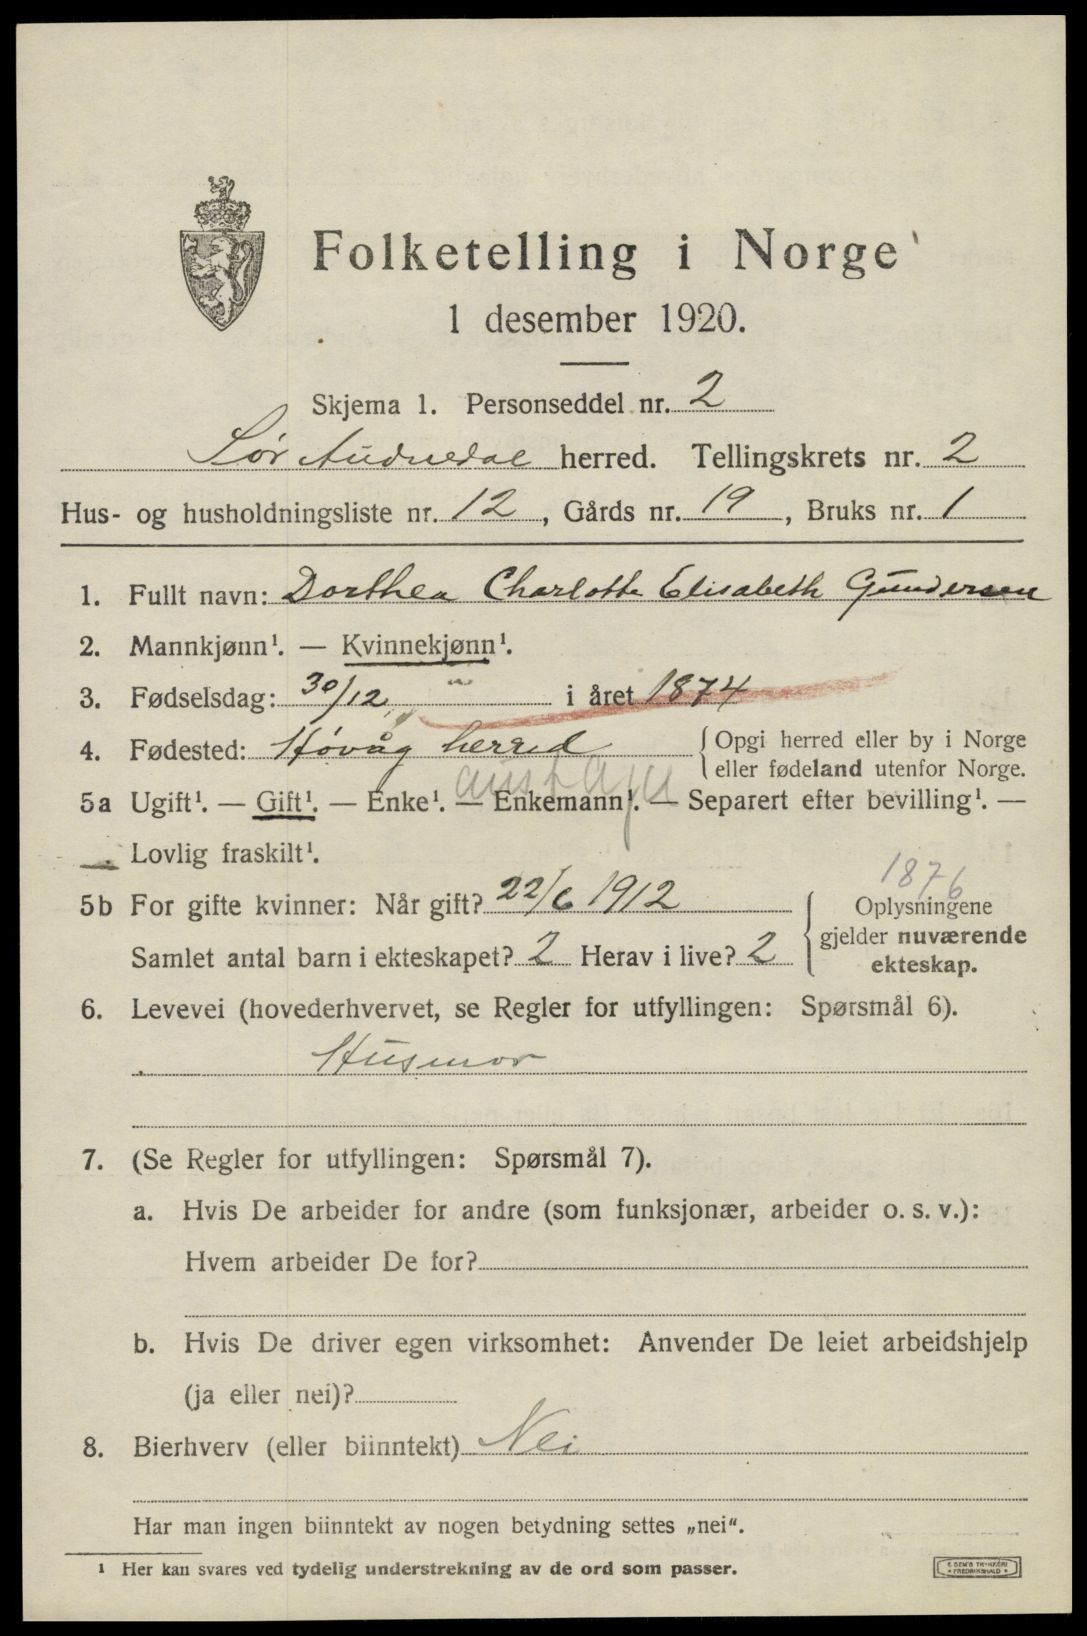 Folketelling i Norge
1 desember 1920.
Skjema 1. Personseddel nr. 2
Sør Audnedal herred. Tellingskrets nr. 2
Hus- og husholdningsliste nr. 12, Gårds nr. 19, Bruks nr. 1
1. Fullt navn: Dorthea Charlotte Elisabeth Gundersen
2. Mannkjønn¹. — Kvinnekjønn¹.
3. Fødselsdag: 30/12 i året 1874
4. Fødested: Høvåg herred { Opgi herred eller by i Norge
eller fødeland utenfor Norge.
5a Ugift¹. — Gift¹. — Enke¹. — Enkemann¹. — Separert efter bevilling¹. —
Lovlig fraskilt¹.
1876
5b For gifte kvinner: Når gift? 22/6 1912 { Oplysningene
gjelder nuværende
ekteskap.
Samlet antal barn i ekteskapet? 2 Herav i live? 2
6. Levevei (hovederhvervet, se Regler for utfyllingen: Spørsmål 6).
Husmor
7. (Se Regler for utfyllingen: Spørsmål 7).
a. Hvis De arbeider for andre (som funksjonær, arbeider o. s. v.):
Hvem arbeider De for?
b. Hvis De driver egen virksomhet: Anvender De leiet arbeidshjelp
(ja eller nei)?
8. Bierhverv (eller biinntekt) Nei
Har man ingen biinntekt av nogen betydning settes „nei“.
¹ Her kan svares ved tydelig understrekning av de ord som passer.
E. SEM'S TRYKKERI
FREDRIKSHALD